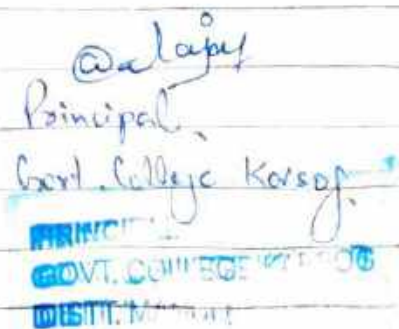 Principal,
Govt. College Karsog.
PRINCIPAL
GOVT. COLLEGE KARSOG
DISTT. MANDI